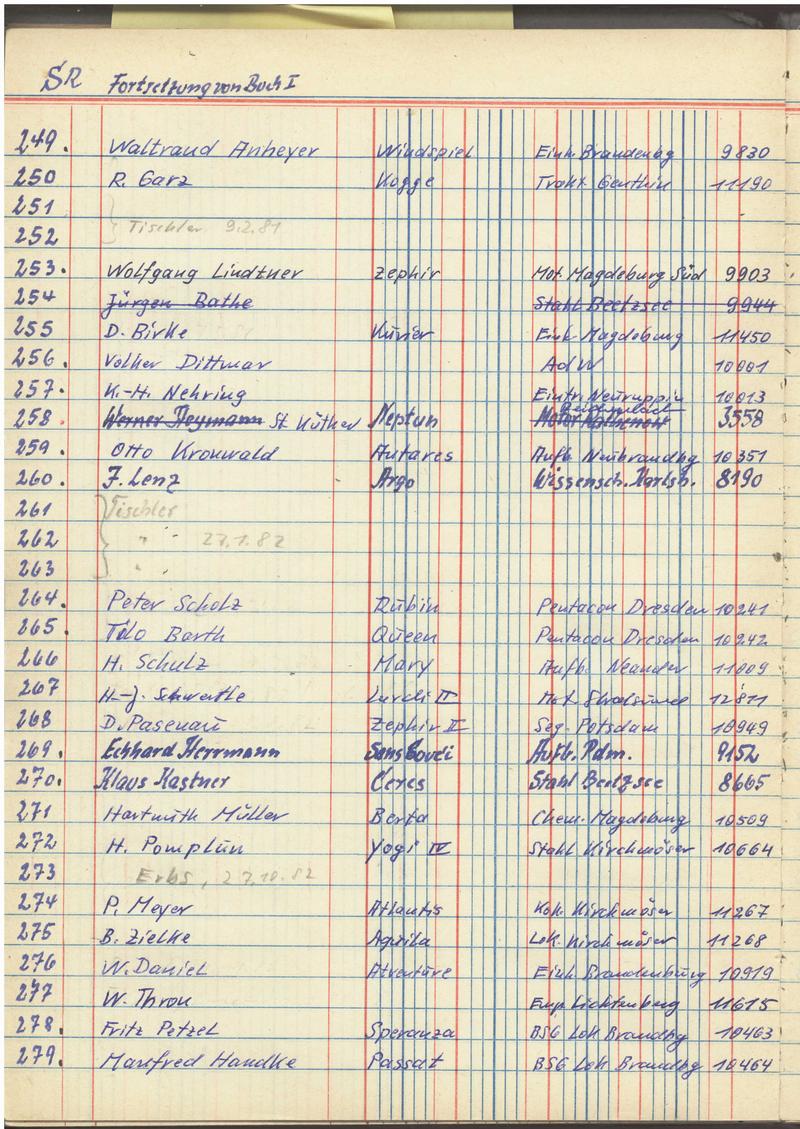 SR Fortsetzung von Buch I
249. Waltraud Anheyer Windspiel Einh. Brandenbg 9830
250 R. Garz Kogge Trakt. Genthin 11190
251
252 Tischler 9.2.81
253. Wolfgang Lindtner Zephir Mot. Magdeburg Süd 9903
254 Jürgen Bathe Stahl Beetzsee 9944
255 D. Birke Kurier Einh. Magdeburg 11450
256. Volker Dittmar AdW 10001
257. K.-H. Nehring Eintr. Neuruppin 10013
258 Werner Heymann St. Küther Neptun Motor Rathenow 3558
259. Otto Kronwald Antares Aufb. Neubrandbg 10351
260. F. Lenz Argo Wissensch. Karlsh. 8190
261 Tischler
262 " " 27.1.82
263 "
264. Peter Scholz Rubin Pentacon Dresden 10241
265. Tilo Barth Queen Pentacon Dresden 10242
266 H. Schulz Mary Aufb. Neander 11009
267 H.-J. Schwertle II Mot. Stralsund 12811
268 D. Pasenau Zephir II Seg. Potsdam 10949
269. Eckhard Herrmann Sans Souci Aufb. Pdm. 9152
270. Klaus Kastner Ceres Stahl Beetzsee 8665
271 Hartmuth Müller Berta Chem. Magdeburg 10509
272 H. Pomplun Yogi IV Stahl Kirchmöser 10664
273 Erbs, 27.10.82
274 P. Meyer Atlantis Lok. Kirchmöser 11267
275 B. Zielke Aquila Lok. Kirchmöser 11268
276 W. Daniel Atventure Einh. Brandenburg 10919
277 W. Thron Emp. Lichtenberg 11615
278. Fritz Petzel Speranza BSG Lok Brandbg 10463
279. Manfred Handke Passat BSG Lok Brandbg 10464